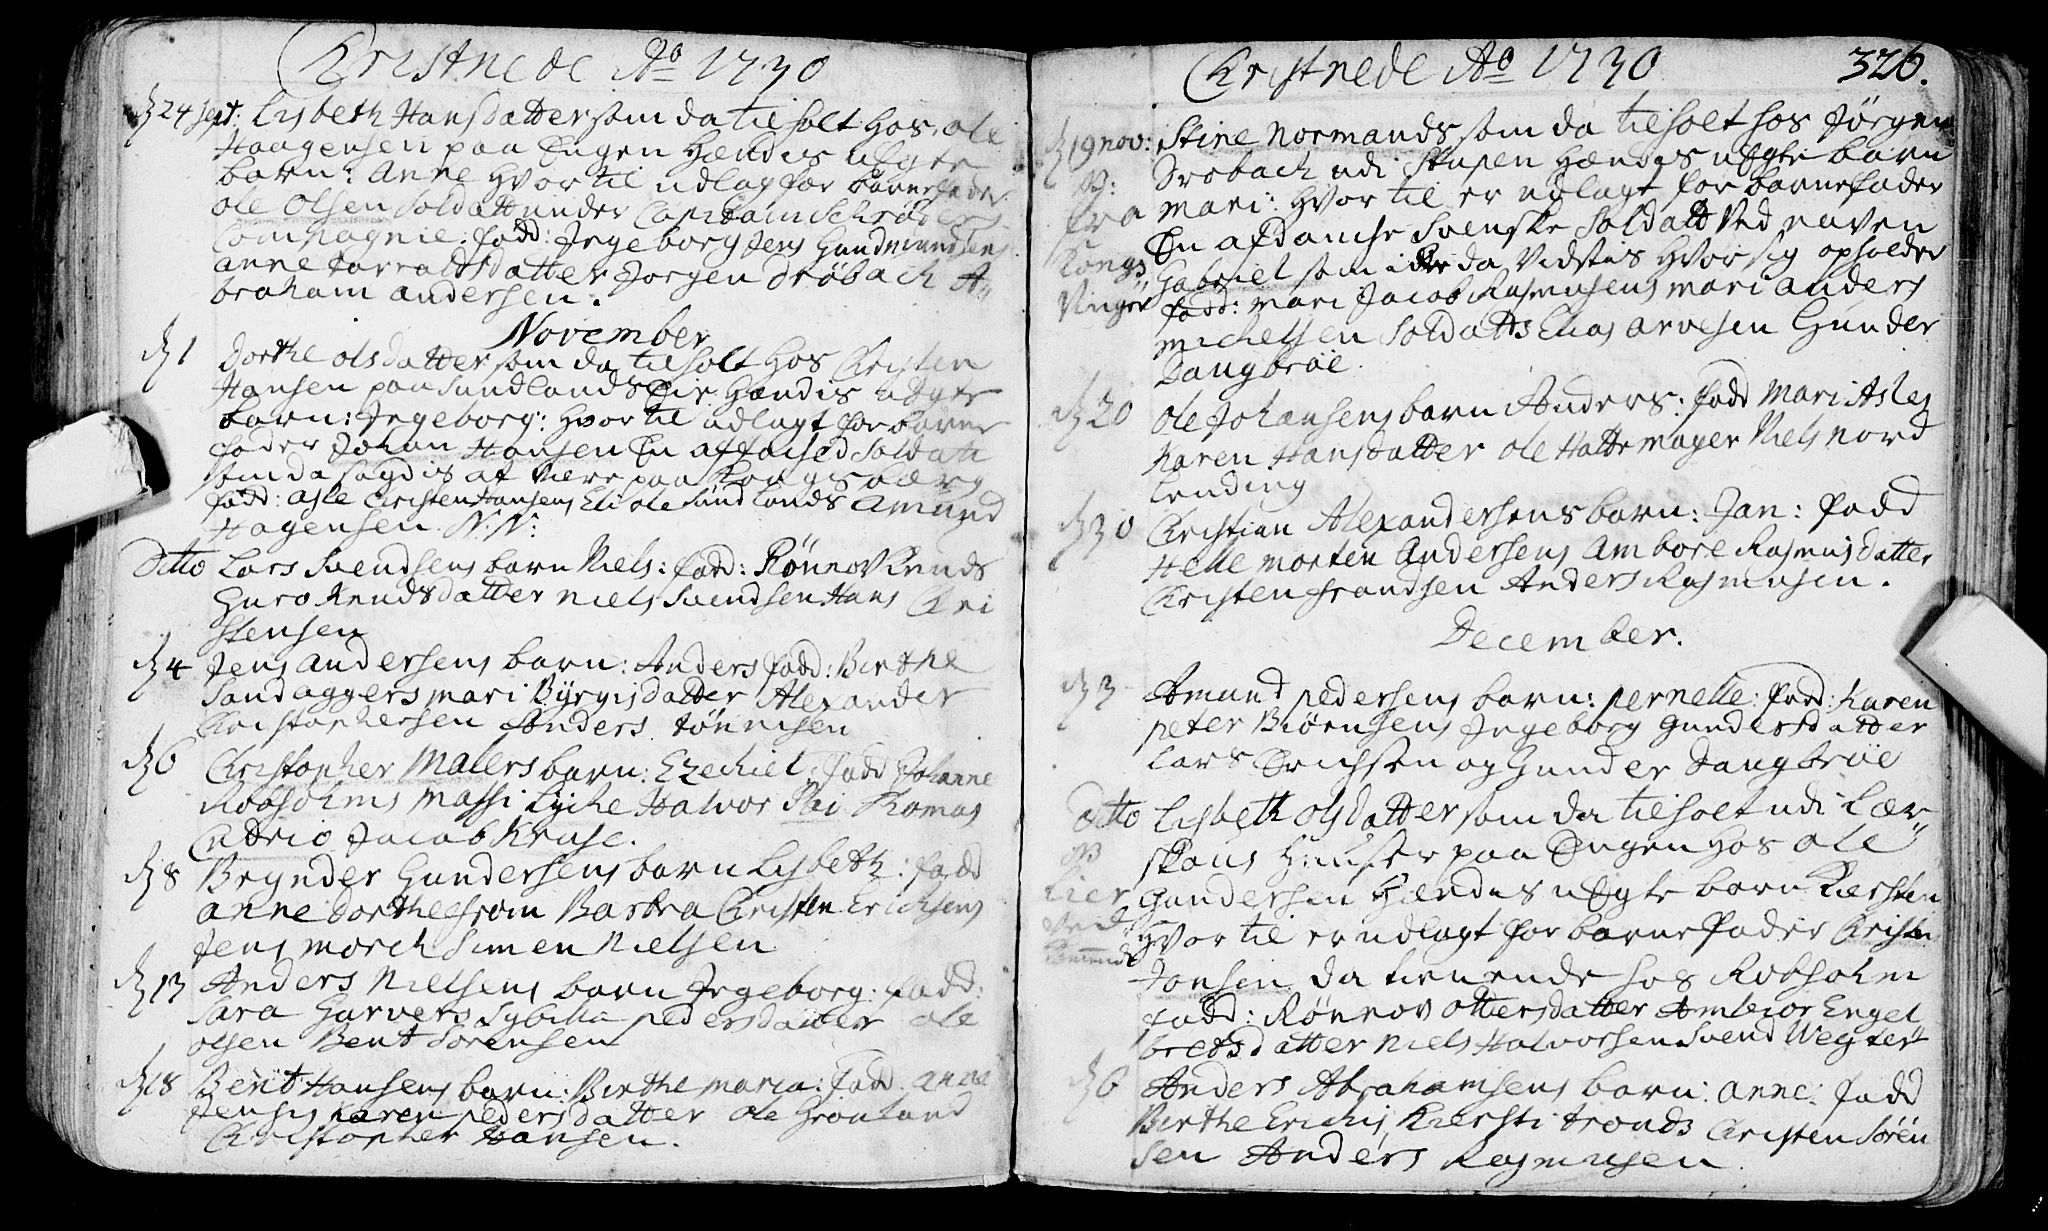 Kristnede Ao 1730
d 24 sept: Lisbeth Hansdatter som da tilholt hos ole
Haagensen paa Engen hendis uægte
barn: Anne hvor til udlagt for barnefader
ole olsen Soldatt under Capitain Schrøders
Compagnie: fadd: Ingeborg Jens Gundmundsens
anne Harraldsdatter Jørgen Drøbach A"
braham andersen.
November
d 1 Dorthe olsdatter som da tilholt hos Christen
Hansen paa Sundlands Eie hendis uægte
barn: Ingeborg: hvor til udlagt for barne
fader Johan Hansen En affached Soldatt
som da sagdis at være paa Kongsberg
fadd: asle Cristen Hansens Eli ole Sundlands Amund
Hagensen N: N:
Ditto Lars Svendsens barn Niels: fadd: Rønnov Knuds
Guro Knudsdatter Niels Svendsen Hans Chri
stensen
d 4 Jens andersens barn: Anders fadd: Birthe
Sandaggers mari Byrgisdatter Alexander
Cristophersen Anders tønnisen
d 6 Christopher Malers barn: Ezechiel: fadd Johanne
Robsholms Massi Lyche Halvor Thomas
Jacob Kruse.
d 8 Brynder Gundersens barn Lisbeth: fadd
anne Barbra Christen Erichsens
Jens morch Simen Nielsen
d 13 Anders Nielsens barn Ingeborg: fadd:
Sara Garvers Sybilla pedersdatter ole
olsen Bent Sørensen
d 18 Berit Hansens barn: Birthe maria: fadd. anne
Jensis Karen pedersdatter ole Grønland
Christopher Hansen.
Kristnede Ao 1730 326.
d 19 nov: Stine Normands som da tilholt hos Jørgen
Drøbach udi Stupen hendis uægte barn
fra mari: hvor til er udlagt for barnefader
En afdanche Svenske Soldatt ved naven
Kongs" Gabriel som ikke da vidstis hvor sig opholder
Vinger fadd: mari Jacob Rasmusens mari anders
michelsen Soldatts Elias arvesen Gunder
Dangbrøe
d 20 ole Johansens barn Anders: fadd mari Asles
Karen Hansdatter ole Hattemager Niels Nord
lending
d 30 Christian Alexandersens barn: Jan: fadd
Helle morten Andersens Ambore Rasmusdatter
Christen frandsen Anders Rasmusen.
December.
d 3 Amund pedersens barn: pernelle: fadd: Karen
peter Biørnsens Ingeborg gundersdatter
Lars Erichsen og Gunder Dangbrøe
Ditto Lisbeth olsdatter som da tilholt udi Lær"
skous Huuser paa Engen hos ole
Lier Gundersen hendis uægte barn Kiersten
hvor til er udlagt for barnefader Christen
Hansen da tienende hos Robsholm
fadd: Rønnov ottersdatter Ambior Engel
bretsdatter Niels Halvorsen Svend Wegter
d 6 Anders Abrahamsens barn: anne: fadd
Birthe Erichs Kiersti tronds Cristen Søren
sen Anders Rasmusen